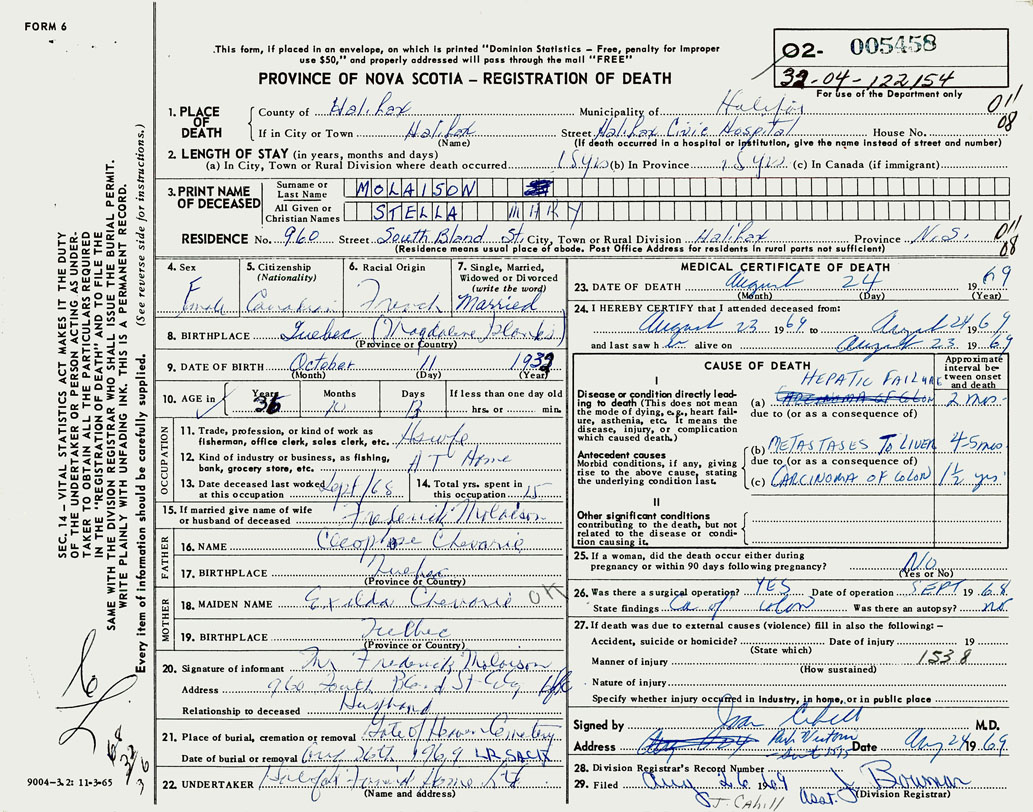 FORM 6
This form, if placed in an envelope, on which is printed "Dominion Statistics – Free, penalty for improper
use $50," and properly addressed will pass through the mail "FREE"
PROVINCE OF NOVA SCOTIA – REGISTRATION OF DEATH
02- 005458
32-04-122154
For use of the Department only
1. PLACE OF DEATH
County of Halifax Municipality of Halifax 011
If in City or Town Halifax Street Halifax Civic Hospital House No. 08
(Name) (If death occurred in a hospital or institution, give the name instead of street and number)
2. LENGTH OF STAY (in years, months and days)
(a) In City, Town or Rural Division where death occurred 15 yrs (b) In Province 15 yrs (c) In Canada (if immigrant)
3. PRINT NAME OF DECEASED
Surname or Last Name MOLAISON
All Given or Christian Names STELLA MARY
RESIDENCE No. 960 Street South Bland St. City, Town or Rural Division Halifax Province N.S. 011
(Residence means usual place of abode. Post Office Address for residents in rural parts not sufficient) 08
4. Sex F Female
5. Citizenship (Nationality) Canadian
6. Racial Origin French
7. Single, Married, Widowed or Divorced (write the word) Married
8. BIRTHPLACE Quebec (Magdalene Islands)
(Province or Country)
9. DATE OF BIRTH October 11 1932
(Month) (Day) (Year)
10. AGE in Years 36 Months 10 Days 13 If less than one day old hrs. or min.
OCCUPATION
11. Trade, profession or kind of work as fisherman, office clerk, sales clerk, etc. Hswfe
12. Kind of industry or business, as fishing, bank, grocery store, etc. AT Home
13. Date deceased last worked at this occupation Sept/68
14. Total yrs. spent in this occupation 15
15. If married give name of wife or husband of deceased Frederick Molaison
FATHER
16. NAME Cleophose Chevarie
17. BIRTHPLACE Quebec
(Province or Country)
MOTHER
18. MAIDEN NAME Exilda Chevarie OK
19. BIRTHPLACE Quebec
(Province or Country)
20. Signature of informant Mr Frederick Molaison
Address 960 South Bland St. City Hfx
Relationship to deceased Husband
21. Place of burial, cremation or removal Gate of Heaven Cemetery
Date of burial or removal Aug 26th 1969 L.R. SACK
22. UNDERTAKER Halifax Funeral Home Ltd.
(Name and address)
MEDICAL CERTIFICATE OF DEATH
23. DATE OF DEATH August 24 1969
(Month) (Day) (Year)
24. I HEREBY CERTIFY that I attended deceased from:
August 23 1969 to August 24 1969
and last saw her alive on August 23 1969
CAUSE OF DEATH
Approximate interval between onset and death
I
Disease or condition directly leading to death (This does not mean the mode of dying, e.g., heart failure, asthenia, etc. It means the disease, injury, or complication which caused death.)
HEPATIC FAILURE
(a) CARCINOMA OF COLON 2 mos.
due to (or as a consequence of)
Antecedent causes
Morbid conditions, if any, giving rise to the above cause, stating the underlying condition last.
(b) METASTASES TO LIVER 4-5 mos
due to (or as a consequence of)
(c) CARCINOMA OF COLON 1½ yr.
II
Other significant conditions contributing to the death, but not related to the disease or condition causing it.
25. If a woman, did the death occur either during
pregnancy or within 90 days following pregnancy? No
(Yes or No)
26. Was there a surgical operation? YES Date of operation SEPT 1968
State findings Ca of colon Was there an autopsy? no
27. If death was due to external causes (violence) fill in also the following: –
Accident, suicide or homicide? Date of injury 19
(State which)
Manner of injury 1538
(How sustained)
Nature of injury
Specify whether injury occurred in Industry, in home, or in public place
Signed by Joan Cahill M.D.
Address Date Aug 24 1969
28. Division Registrar's Record Number
29. Filed Aug 26 1969 Asst. J. Bowman
J. Cahill (Division Registrar)
SEC. 14 – VITAL STATISTICS ACT MAKES IT THE DUTY
OF THE UNDERTAKER OR PERSON ACTING AS UNDERTAKER TO OBTAIN ALL THE PARTICULARS REQUIRED
IN THE "REGISTRATION OF DEATH" AND TO FILE THE
SAME WITH THE DIVISION REGISTRAR WHO SHALL ISSUE THE BURIAL PERMIT.
WRITE PLAINLY WITH UNFADING INK. THIS IS A PERMANENT RECORD.
Every item of information should be carefully supplied. (See reverse side for instructions.)
68
32
36
9004-3.2: 11-3-65